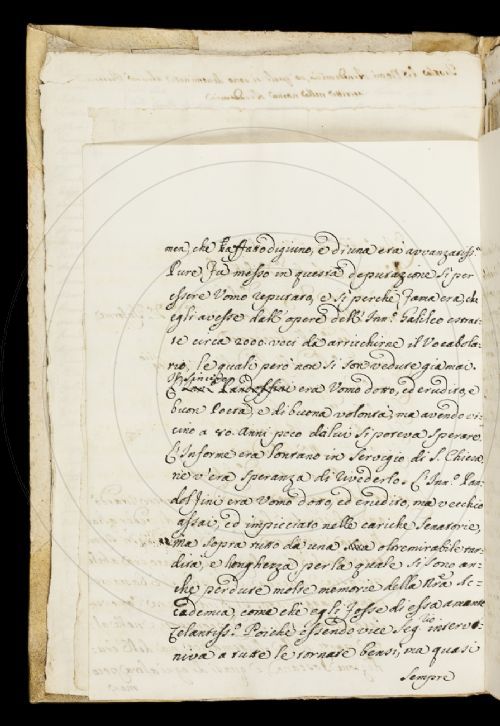 men, che affatto digiuno, e di una era avvanzatiss.ª
Pure fu messo in questa deputazione si per
essere Uomo reputato, e si perche fama era, che
egli avesse dall' opere dell' Inn.º Galileo estrat-
te circa 2000. voci da arricchirne il Vocabola-
rio, le quali però non si son vedute già mai.
era Uomo dotto, ed erudito, e
buon Poeta, e di buona volontà, ma avendo vi-
cino a 80. Anni poco da lui si poteva sperare.
L' Informe era lontano in servigio di S. Chiesa
ne v'era speranza di rivederlo. L' Inn.º Pan-
dolfini era Uomo dotto, ed erudito, ma vecchio
assai, ed impicciato nelle cariche Senatorie,
ma sopra tutto da una oltremirabile tar-
dità, e lunghezza per la quale si sono an-
che perdute molte memorie della nr̃a Ac-
cademia, come che egli fosse di essa amante
zelantiss.º Poiche essendo vice Seg.rio interve-
niva a tutte le tornate bensi, ma quasi
sempre